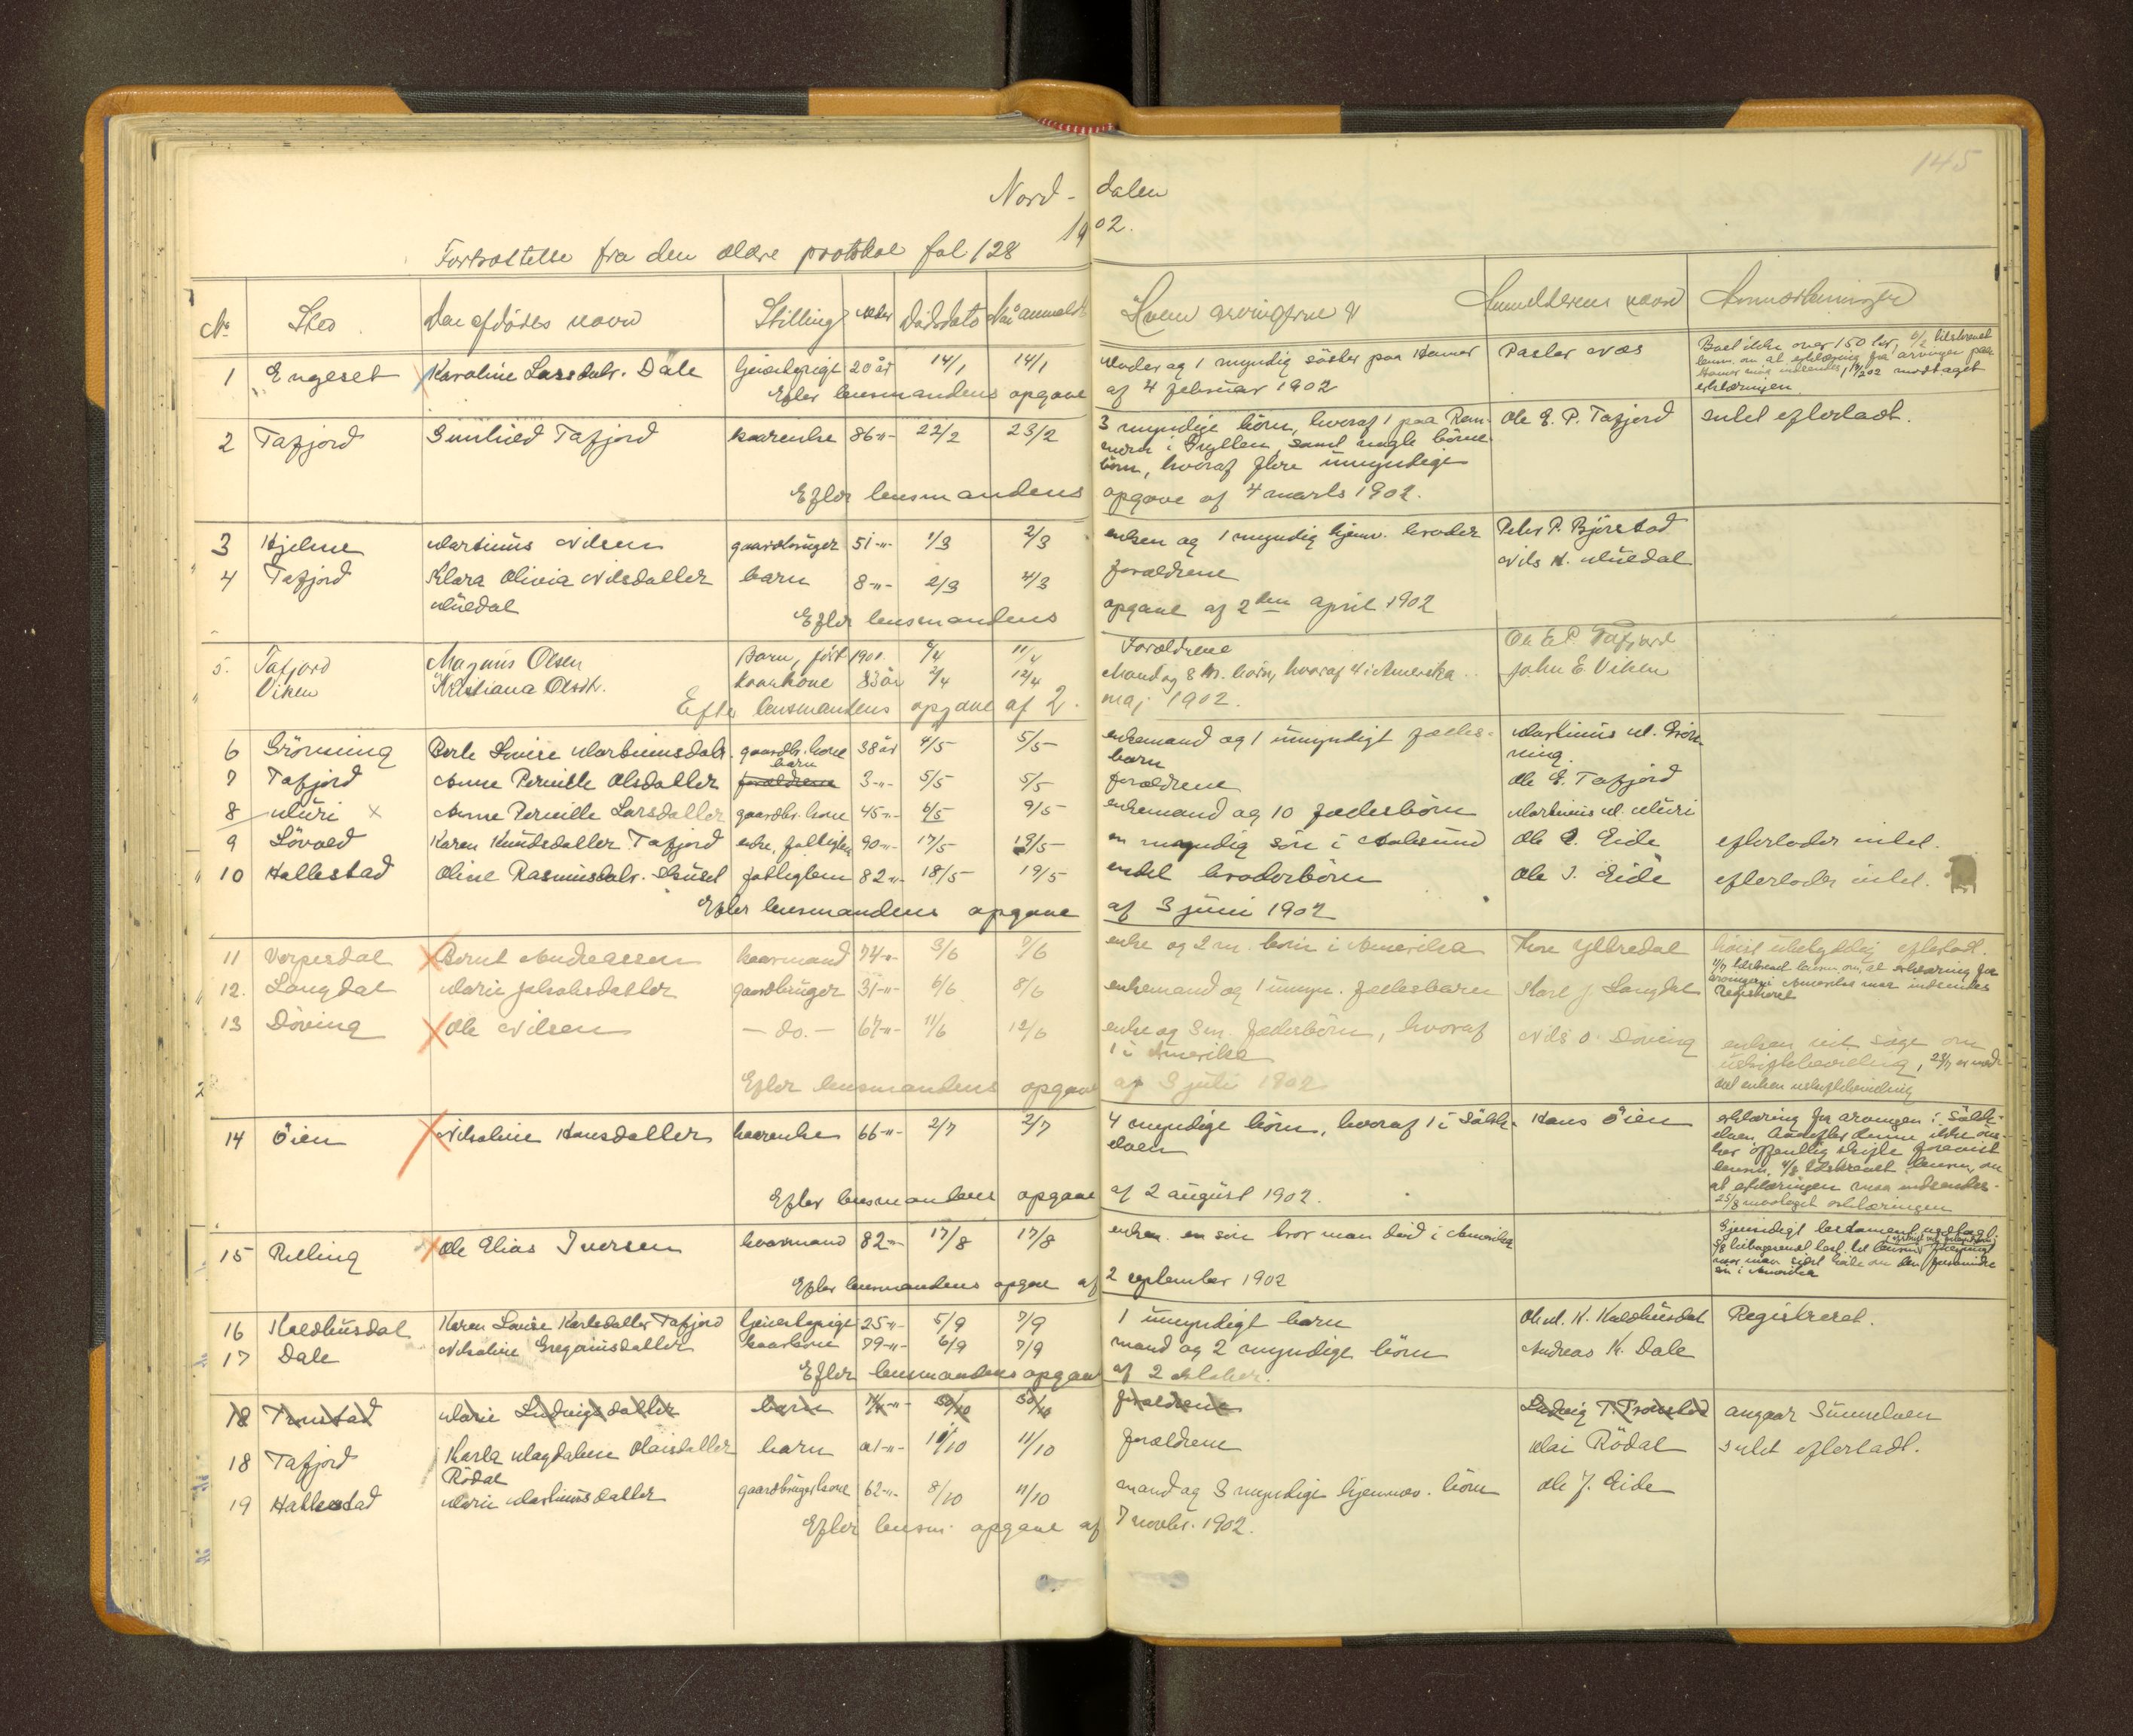 145
Nord- dalen
1902.
Fortsættelse fra den ældre protokol fol 128
No Sted Den afdødes navn Stilling Alder Dødsdato Naar anmeldt Hvem arvingerne er Anmelderens navn Anmerkninger
1 Engeset Karoline Larsdatr. Dale 20 år 14/1 14/1 Moder og 1 myndig søster paa Hamar Peder Næs Boet ikke over 150 kr,
Efter lensmandens opgave af 4 februar 1902 erklæringen
2 Tafjord Gunhild Tafjord kaarenke 86-"- 22/2 23/2 3 myndige börn, hvoraf 1 paa Ole E. P. Tafjord intet efterladt.
börn, hvoraf flere umyndige
Efter lensmandens opgave af 4 marts 1902.
3 Hjelme Martinus Nilsen gaardbruger 51-"- 1/3 2/3 enken og 1 myndig hjemv. broder Peder P. Bjørstad
4 Tafjord Klara Olivia Nilsdatter barn 8-"- 2/3 4/3 forældrene Nils H. Muldal
Muldal
Efter lensmandens opgave af 2den april 1902
5. Tafjord Magnus Olsen Barn, født 1901. 11/4 Forældrene Ole E. P. Tafjord
Viken Kristiana Olsdtr. kaarkone 83 år 2/4 12/4 Mand og 8 m. børn, hvoraf 4 i Amerika John E. Viken
Efter lensmandens opgave af 2. maj 1902.
6 Grönning Berte Lovise Martinusdatr. gaardbr. kone 38 år 4/5 5/5 enkemand og 1 umyndigt fælles- Martinus M. Grön-
barn ning.
7 Tafjord Anne Pernille Olsdatter forældrene barn 3-"- 5/5 5/5 forældrene Ole E. Tafjord
8 Muri x Anne Pernille Larsdatter gaardbr. kone 45-"- 6/5 9/5 enkemand og 10 fællesbörn Martinus M. Muri
9 Lövoll Karen Knudsdatter Tafjord enke, fattiglem 90-"- 17/5 19/5 en myndig sön i Aalesund Ole J. Eide efterlader intet.
10 Hallestad Oline Rasmusdatr. fattiglem 82-"- 18/5 19/5 endel broderbörn Ole J. Eide efterlader intet.
Efter lensmandens opgave af 3 juni 1902
11 Verpesdal Bernt Andreassen kaarmand 74-"- 3/6 7/6 enke og 2 m. börn i Amerika Thore Yttredal höist ubetydelig efterladt.
12. Langdal Marie Jakobsdatter gaardbruger 31-"- 6/6 8/6 enkemand og 1 umyn. fællesbarn Karl J. Langdal Registreret
13 Döving Ole Nilsen - do. - 67-"- 11/6 12/6 enke og 3 m. fællesbörn, hvoraf Nils O. Döving enken vil søge om
1 i Amerika uskiftebevilling,
Efter lensmandens opgave af 3 juli 1902
14 Öien Nikoline Hansdatter kaarenke 66-"- 2/7 2/7 4 myndige börn, hvoraf 1 i Sölk- Hans Öien erklæring fra arvingen i Sölk-
elven
at erklæringen maa indsendes.
25/8 modtaget erklæringen
Efter lensmandens opgave af 2 august 1902.
15 Relling Ole Elias Iversen kaarmand 82-"- 17/8 17/8 enken. en sön tror man död i Amerika
Efter lensmandens opgave af 2 september 1902
16 Kaldhusdal Karen Lovise Karlsdatter Tafjord 25-"- 5/9 7/9 1 umyndigt barn Ole M. K. Kaldhusdal Registreret.
17 Dale Nikoline Gregoriusdatter kaarkone 79-"- 6/9 7/9 mand og 2 myndige börn Andreas K. Dale
Efter lensmandens opgave af 2 oktober.
18 Tronstad Marie Ludvigsdatter barn 30/10 forældrene Ludvig T. Tronstad angaar Sunnelven
18 Tafjord Karla Magdalene Olaisdatter barn 11/10 11/10 forældrene Olai Rödal intet efterladt.
Rödal
19 Hallestad Marie Martinusdatter gaardbrugerkone 62-"- 8/10 11/10 mand og 3 myndige hjemmev. börn Ole J. Eide
Efter lensm. opgave af 7 novbr. 1902.